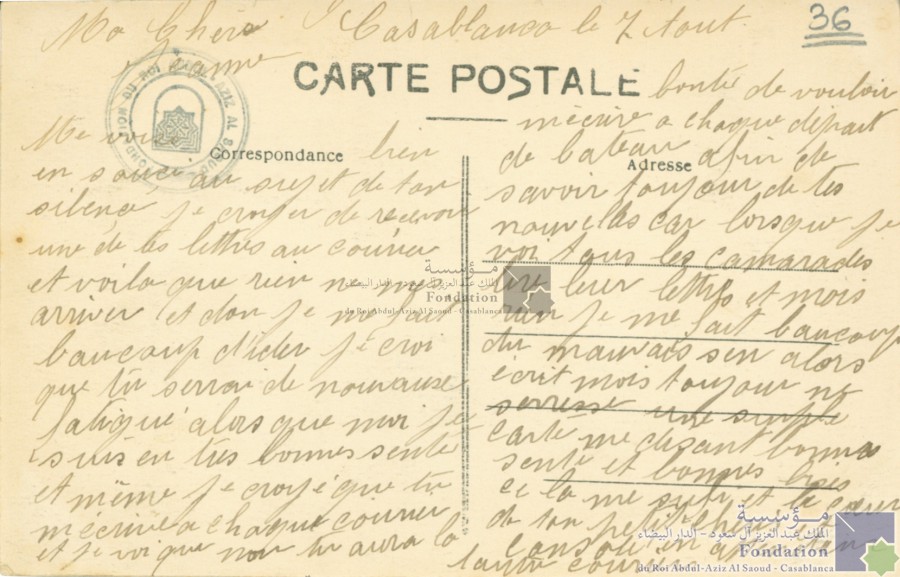 Ma Chère Casablanca le 7 Aout.
Jeanne
36
CARTE POSTALE
Correspondance
Adresse
Me voici bien
en souci au sujet de ton
silence je croyer de recevoir
une de tes lettres au courier
et voila que rien ne met
arriver et don je me fait
baucoup d'ider je croi
que tu serrai de nouvause
fatigué alors que moi je
suis en tres bonne senté
et même je croyé que tu
mécrive a chaque courrier
et je voi que non tu aura la
bonté de vouloir
mécrire a chaque départ
de bateau afin de
savoir toujour de tes
nouvelles car lorsque je
voi tous les camarades
lire leur lettre et mois
rien je me fait baucoup
du mauvais sen alors
écrit mois toujour ne
serresse une simple
carte me disant bonne
senté et bonnes
ce la me sufi et le cœur
de ton petit
consolé en
مؤسسة
الملك عبد العزيز آل سعود - الدار البيضاء
Fondation
du Roi Abdul-Aziz Al Saoud - Casablanca
مؤسسة
الملك عبد العزيز آل سعود - الدار البيضاء
Fondation
du Roi Abdul-Aziz Al Saoud - Casablanca